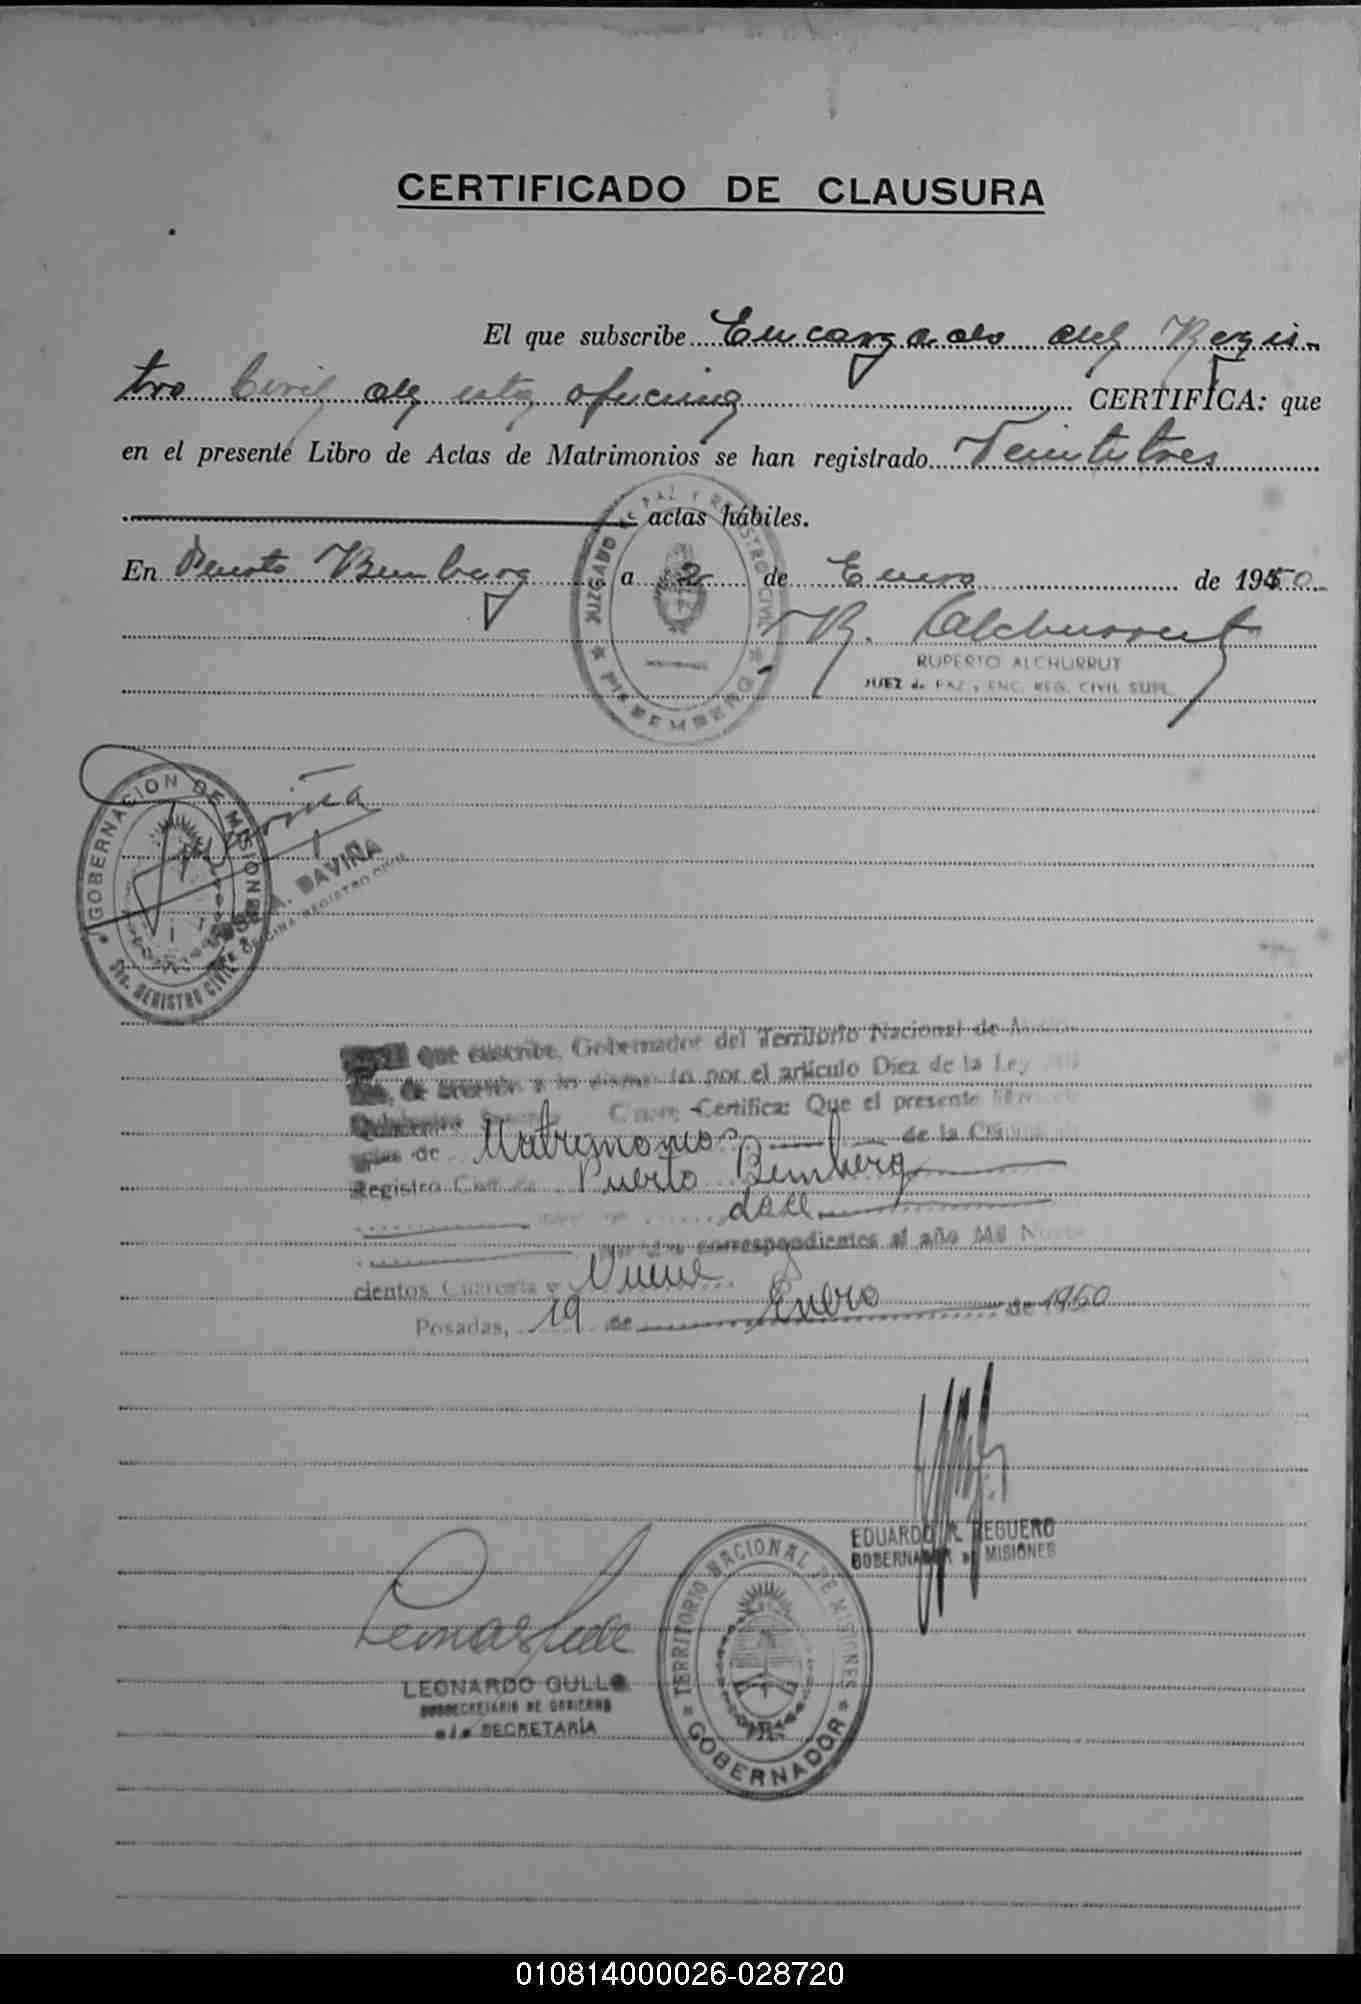 CERTIFICADO DE CLAUSURA
El que subscribe Encargado del Regis-
tro Civil de esta oficina CERTIFICA: que
en el presente Libro de Actas de Matrimonios se han registrado Veintitres
actas hábiles.
En Puerto Bemberg a 2 de Enero de 1950
JUZGADO DE PAZ Y REGISTRO CIVIL
PTO BEMBERG
R. Alchurrut
RUPERTO ALCHURRUT
JUEZ de PAZ y ENC. REG. CIVIL SUPL.
GOBERNACION DE MISIONES
REGISTRO CIVIL
A. DAVIÑA
OFICINA REGISTRO CIVIL
que suscribe, Gobernador del Territorio Nacional de
de acuerdo a lo por el artículo Diez de la Ley
Certifica: Que el presente
de Matrimonios de la
Registro Civil de Puerto Bemberg
correspondientes al año Mil Nove
cientos Cuarenta y Nueve
Posadas, 19 de Enero de 1950
EDUARDO A. REGUERO
GOBERNADOR DE MISIONES
LEONARDO GULLO
SUBSECRETARIO DE GOBIERNO
a/c SECRETARÍA
TERRITORIO NACIONAL DE MISIONES
GOBERNADOR
010814000026-028720